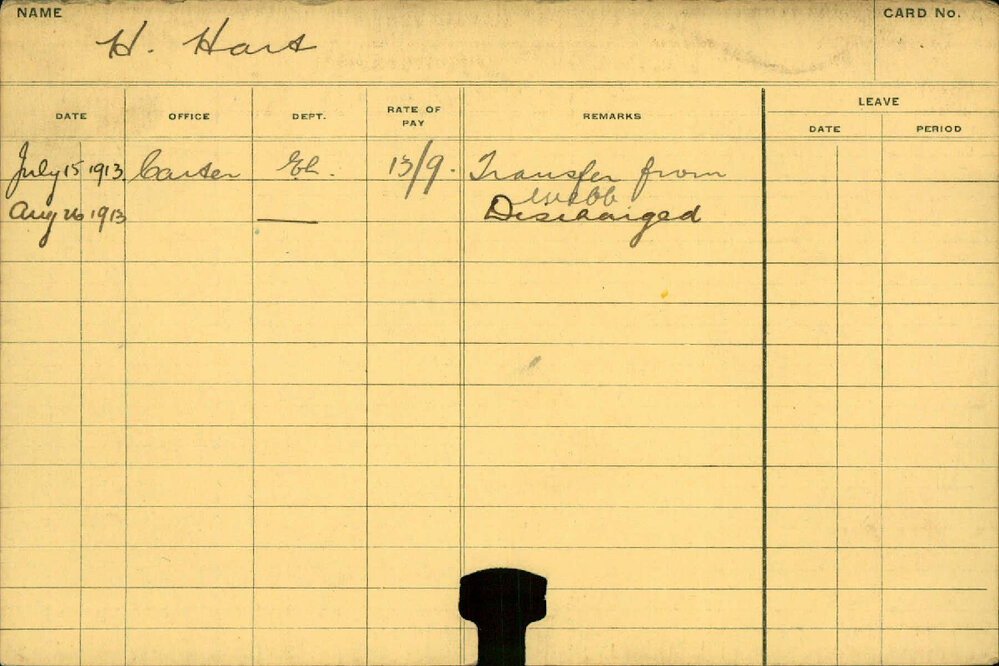 NAME
CARD No.
H. Hart
LEAVE
DATE OFFICE DEPT. RATE OF PAY REMARKS DATE PERIOD
July 15 1913 Carter El. 13/9. Transfer from
Webb
Aug 26 1913 — Discharged